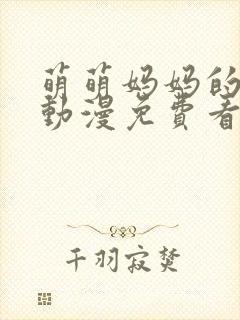 萌萌妈妈的
動漫免費看
千羽寂焚